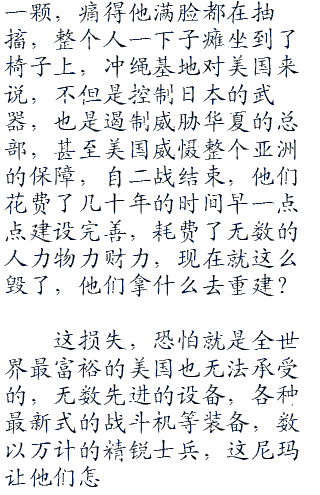 一颗，痛得他满脸都在抽
搐，整个人一下子瘫坐到了
椅子上，冲绳基地对美国来
说，不但是控制日本的武
器，也是遏制威胁华夏的总
部，甚至美国威慑整个亚洲
的保障，自二战结束，他们
花费了几十年的时间早一点
点建设完善，耗费了无数的
人力物力财力，现在就这么
毁了，他们拿什么去重建？
这损失，恐怕就是全世
界最富裕的美国也无法承受
的，无数先进的设备，各种
最新式的战斗机等装备，数
以万计的精锐士兵，这尼玛
让他们怎